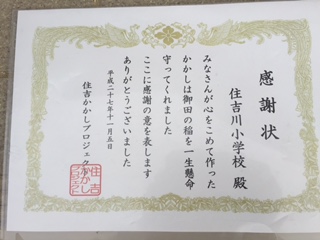 感謝状
住吉川小学校 殿
みなさんが心をこめて作った
かかしは御田の稲を一生懸命
守ってくれました
ここに感謝の意を表します
ありがとうございました
平成二十七年十一月五日
住吉かかしプロジェクト
住吉
かかし
プロジェクト